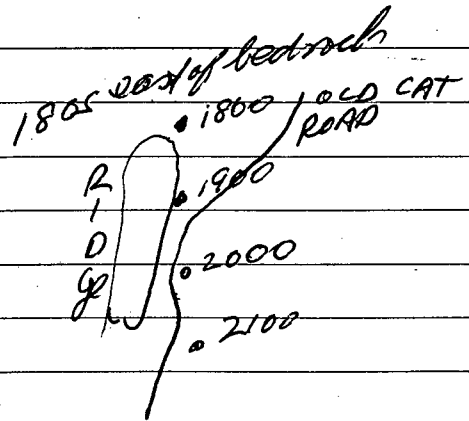 180s east of bedrock
1800
OLD CAT
ROAD
RIDGE
1900
2000
2100